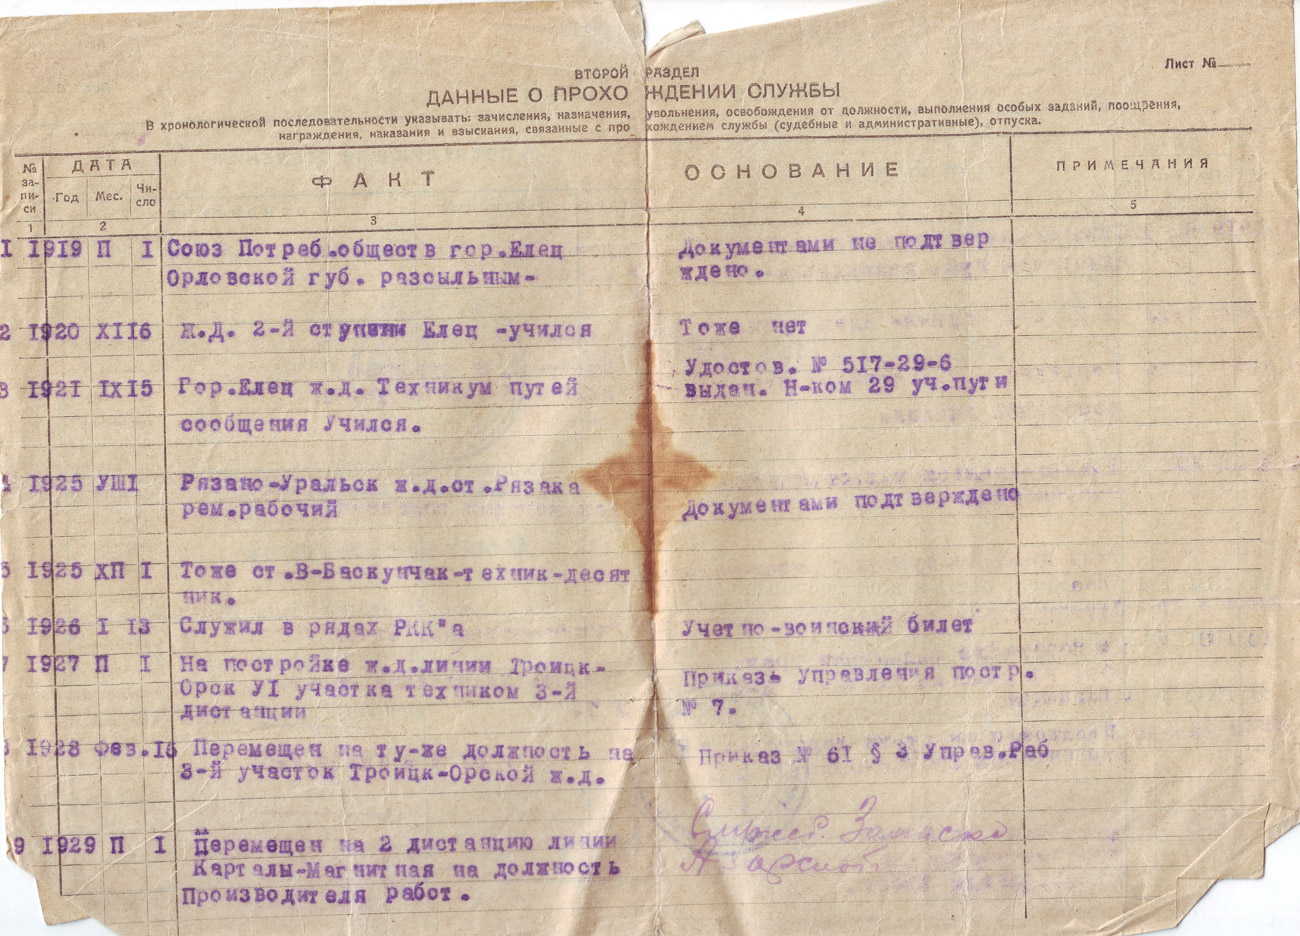 Лист №
ВТОРОЙ РАЗДЕЛ
ДАННЫЕ О ПРОХОЖДЕНИИ СЛУЖБЫ
В хронологической последовательности указывать: зачисления, назначения, увольнения, освобождения от должности, выполнения особых заданий, поощрения,
награждения, наказания и взыскания, связанные с прохождением службы (судебные и административные), отпуска.
№ за-пи-си ДАТА ФАКТ ОСНОВАНИЕ ПРИМЕЧАНИЯ
Год Мес. Чи-сло
1 2 3 4 5
1 1919 П I Союз Потреб.обществ гор.Елец Документами не подтвер
Орловской губ. разсыльным- ждено.
2 1920 XII6 Ж.Д. 2-й ступени Елец -учился Тоже нет
Удостов. № 517-29-6
3 1921 IX I5 Гор.Елец ж.д. Техникум путей выдан. Н-ком 29 уч.пути
сообщения Учился.
4 1925 УШI Рязано-Уральск ж.д.ст.Рязака
рем.рабочий Документами подтверждено
5 1925 ХП I Тоже ст.В-Баскунчак-техник-десят
ник.
6 1926 I I3 Служил в рядах РКК"а Учетно-воинский билет
7 1927 П I На постройке ж.д.линии Троицк-
Орск УI участка техником 3-й Приказ Управления постр.
дистанции № 7.
8 1928 Фев.15 Перемещен на ту-же должность на Приказ № 61 § 3 Управ.Раб
3-й участок Троицк-Орской ж.д.
9 1929 П I Перемещен на 2 дистанцию линии
Карталы-Магнитная на должность
Производителя работ.